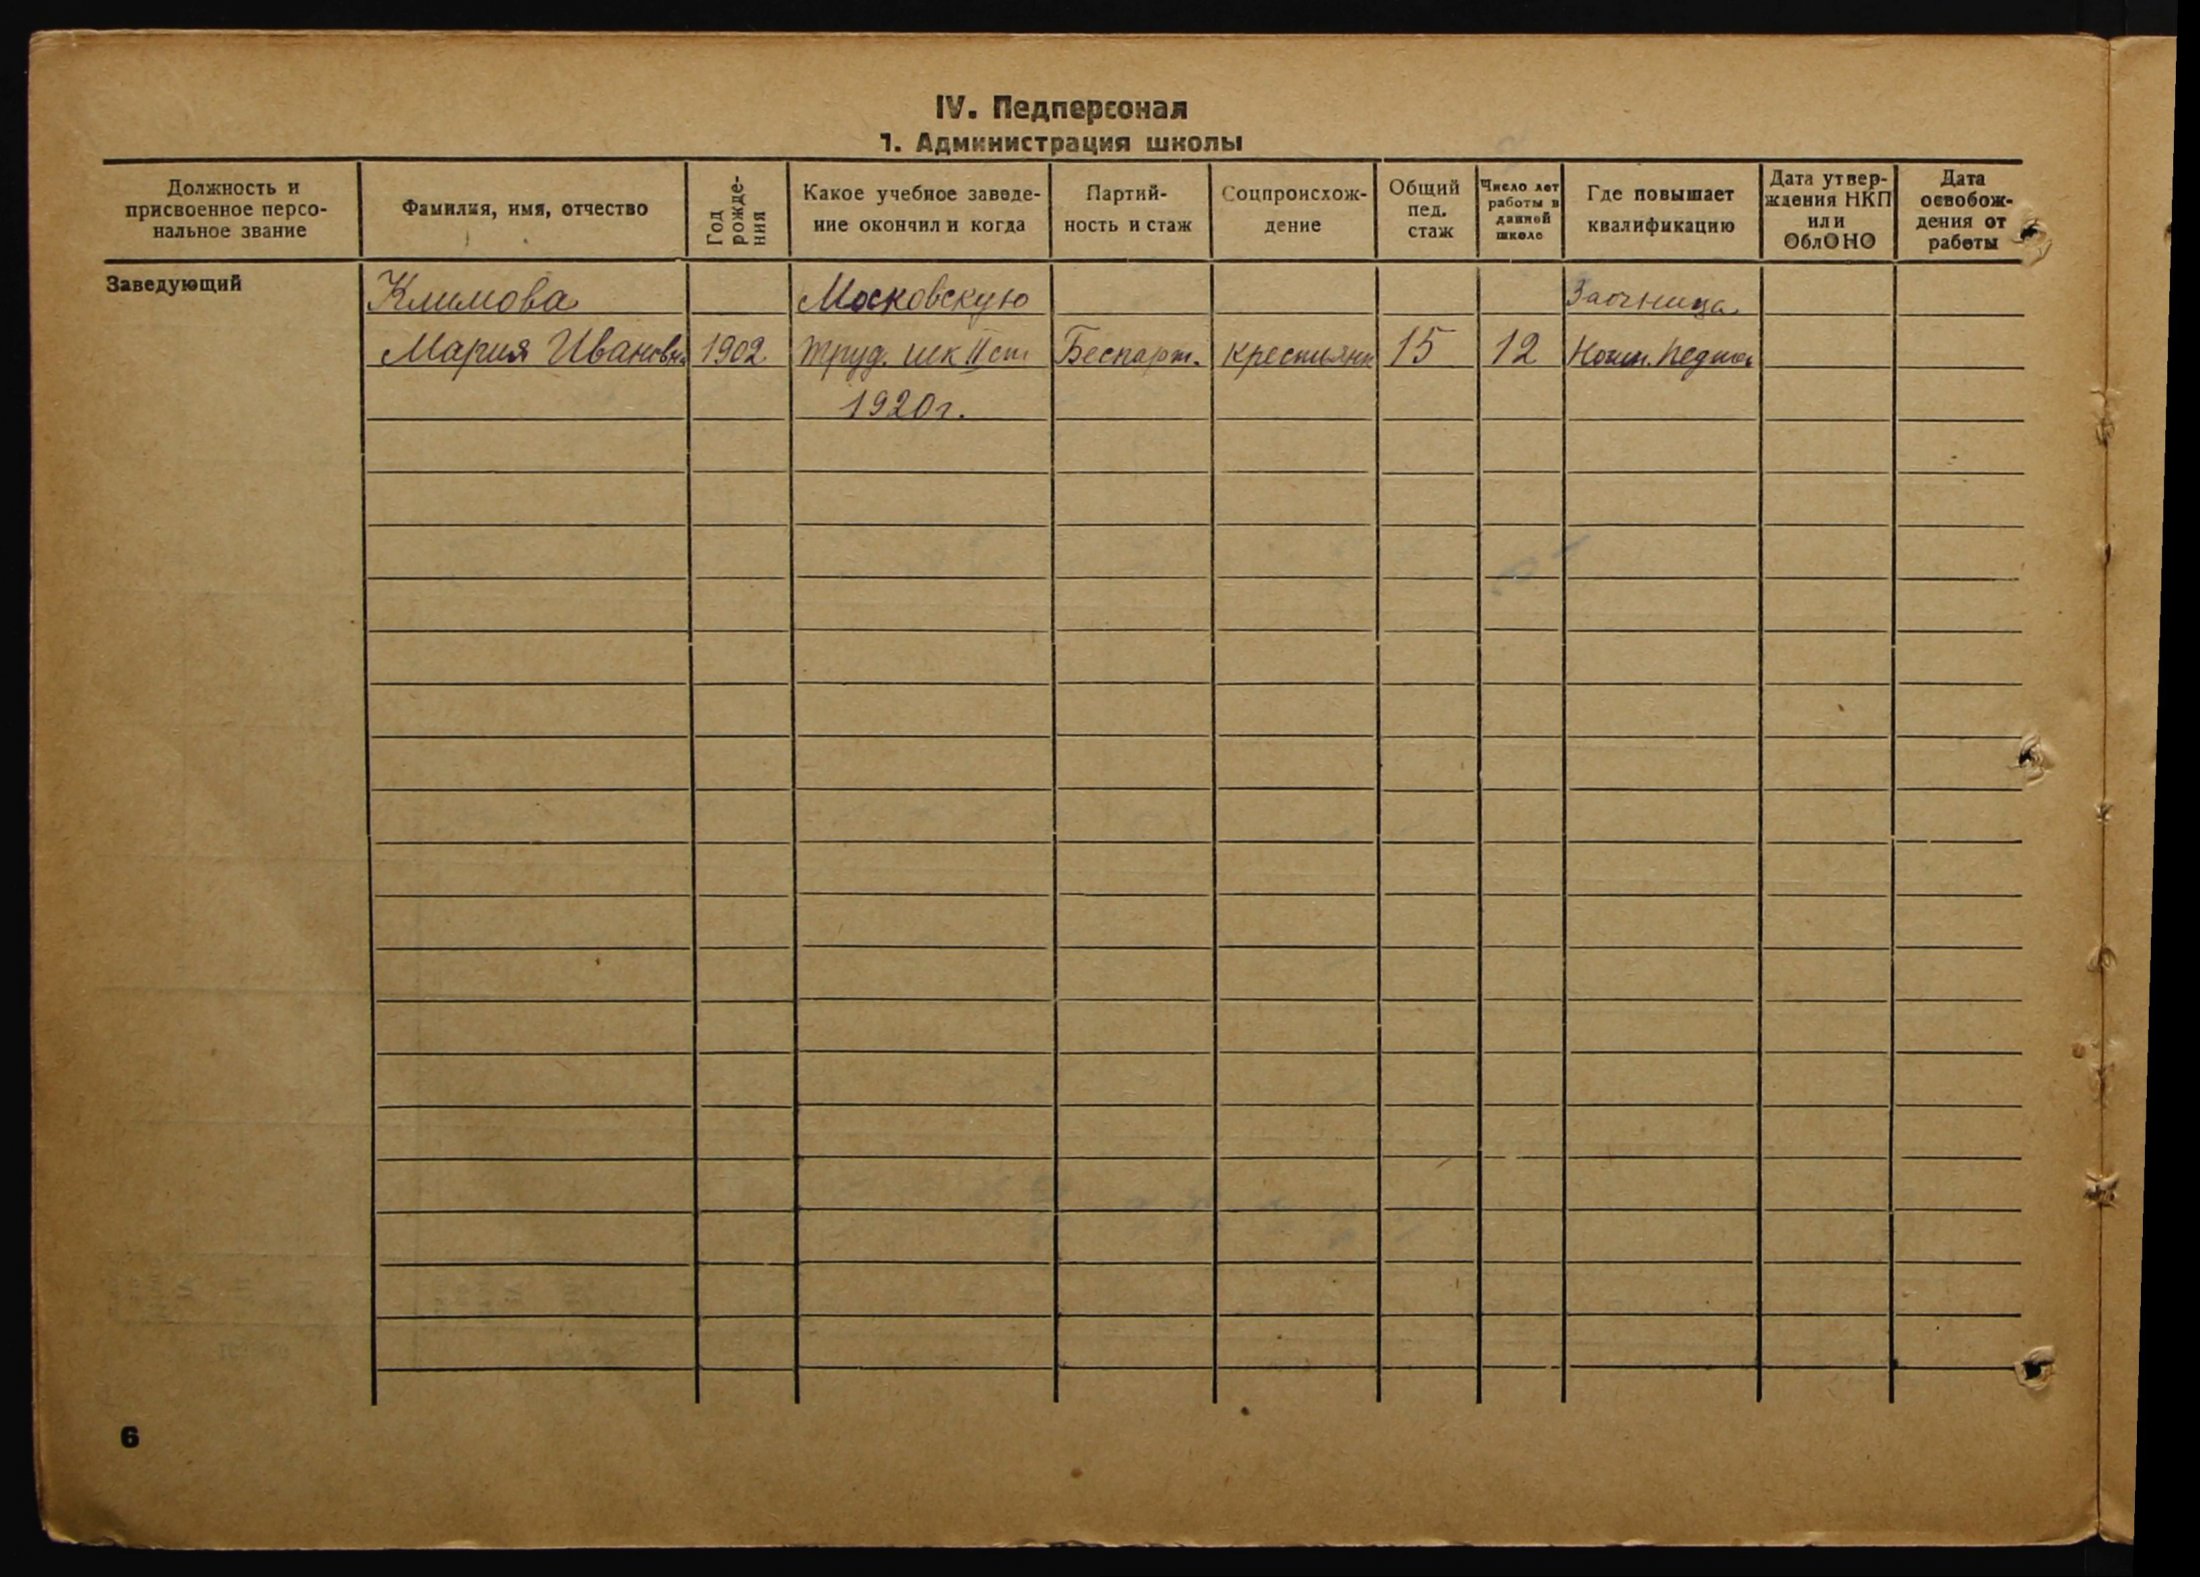 IV. Педперсонал
1. Администрация школы
Должность и присвоенное персо-нальное звание
Фамилия, имя, отчество
Год рожде-ния
Какое учебное заведе-ние окончил и когда
Партий-ность и стаж
Соцпроисхож-дение
Общий пед. стаж
Число лет работы в данной школе
Где повышает квалификацию
Дата утвер-ждения НКП или ОблОНО
Дата освобож-дения от работы
Заведующий
Климова Московскую Заочница
Мария Ивановна 1902 труд. шк II ст Беспарт. крестьянк 15 12
1920 г.
6